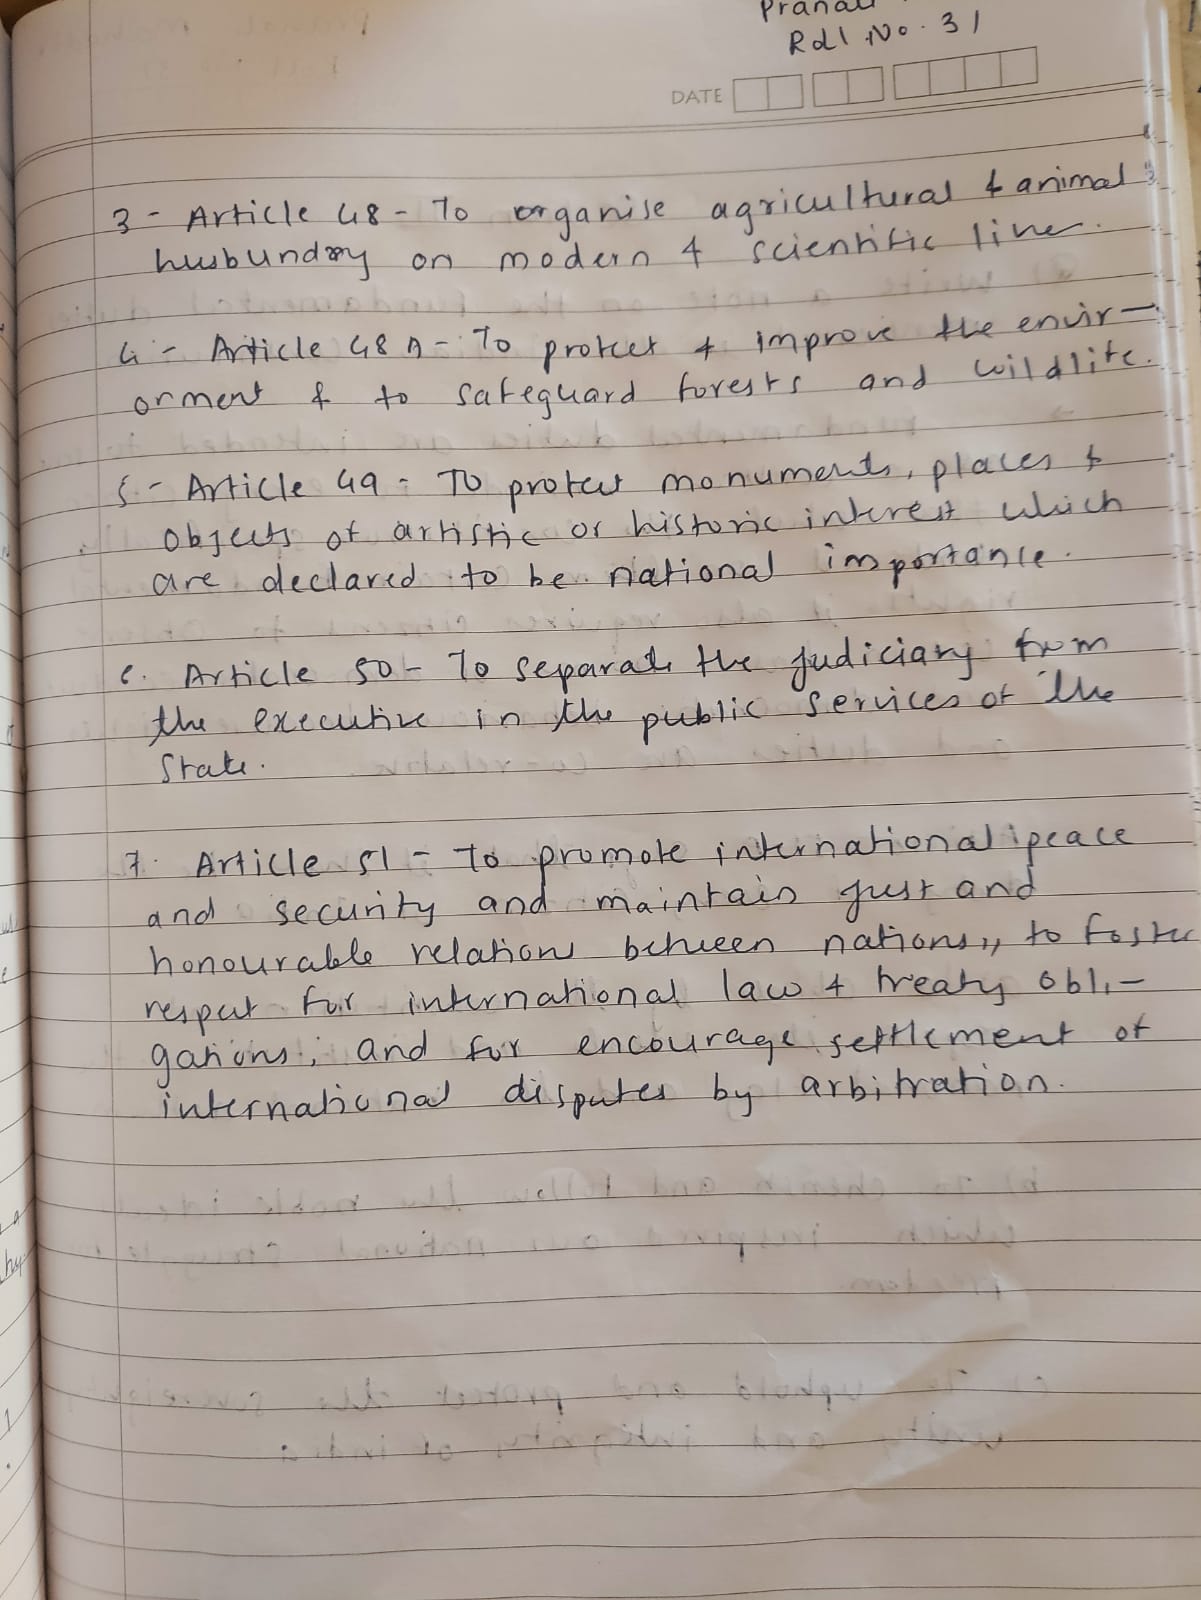 Roll No. 31
DATE
3 - Article 48 - To organise agricultural & animal
husbundry on modern & scientific line.
4 - Article 48 A - To protect & improve the envir-
onment & to safeguard forests and wildlife.
5 - Article 49 - To protect monuments, places &
objects of artistic or historic interest which
are declared to be national importance.
6. Article 50 - To separate the judiciary from
the executive in the public services of the
State.
7. Article 51 - To promote international peace
and security and maintain just and
honourable relations between nations, to foster
respect for international law & treaty obli-
gations, and for encourage settlement of
international disputes by arbitration.